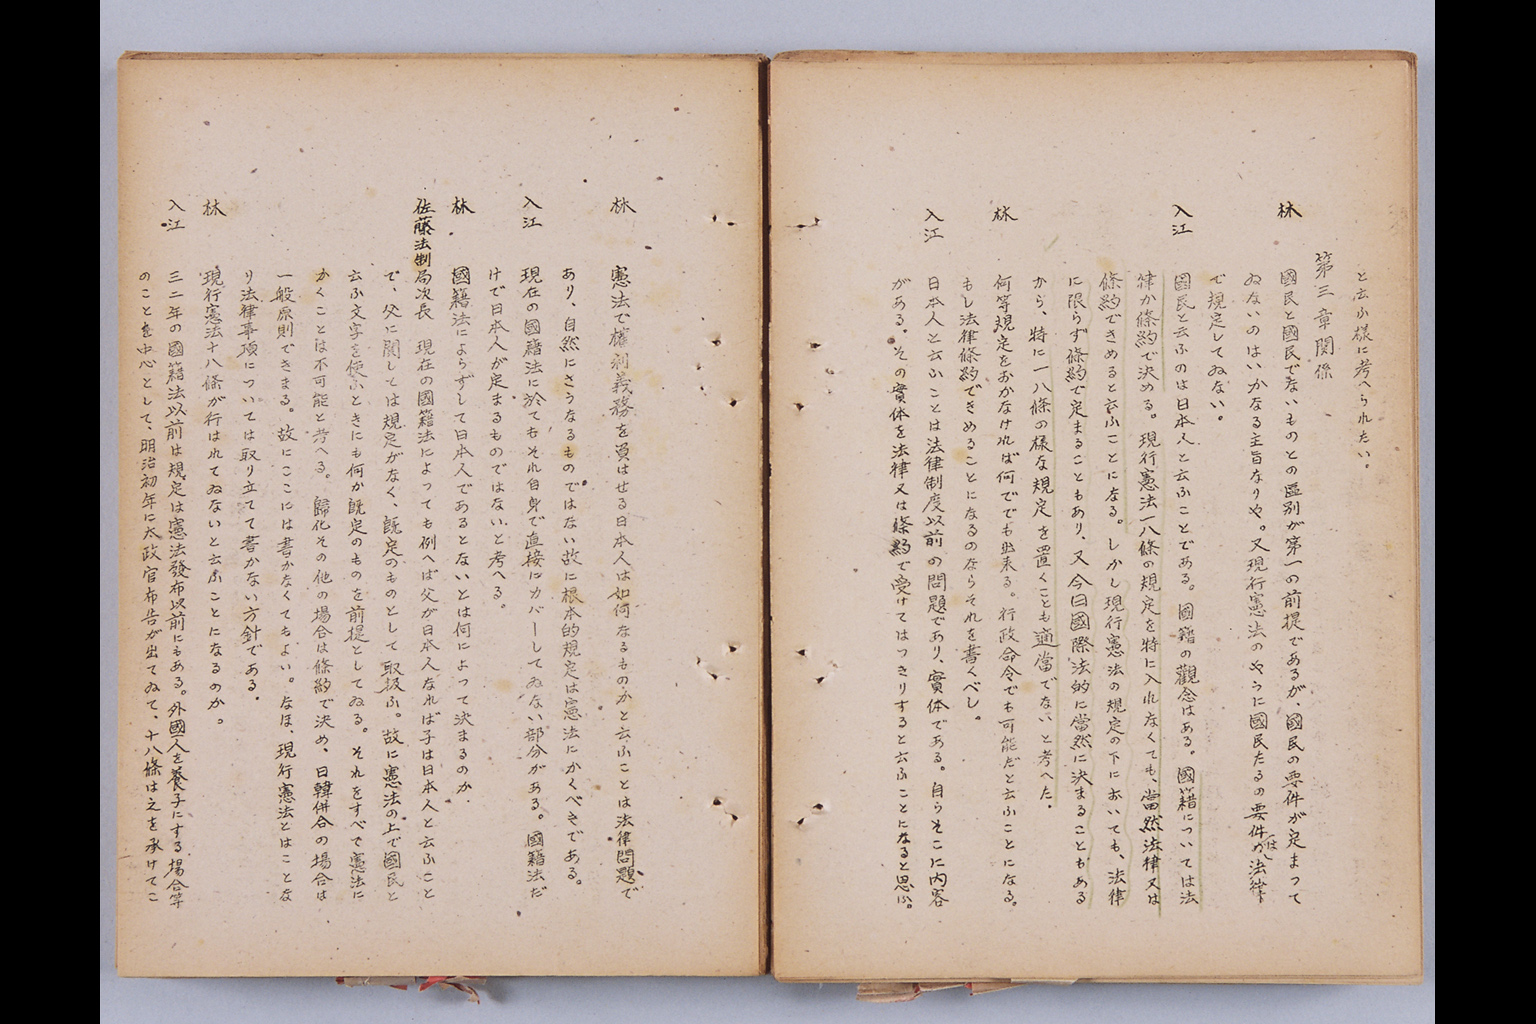 と云ふ様に考へられたい。
第三章関係
林 國民と國民でないものとの區別が第一の前提であるが、國民の要件が定まつて
ゐないのはいかなる主旨なりや。又現行憲法のやうに國民たるの要件は法律
で規定してゐない。
入江 國民と云ふのは日本人と云ふことである。國籍の觀念はある。國籍については法
律か條約で決める。現行憲法一八條の規定を特に入れなくても、當然法律又は
條約できめると云ふことになる。しかし現行憲法の規定の下においても、法律
に限らず條約で定まることもあり、又今日國際法的に當然に決まることもある
から、特に一八條の様な規定を置くことも適當でないと考へた。
林 何等規定をおかなければ何ででも出来る。行政命令でも可能だと云ふことになる。
もし法律條約できめることになるのならそれを書くべし。
入江 日本人と云ふことは法律制度以前の問題であり、實体である。自らそこに内容
がある。その實体を法律又は條約で受けてはつきりすると云ふことになると思ふ。
林 憲法で權利義務を負はせる日本人は如何なるものかと云ふことは法律問題で
あり、自然にさうなるものではない故に根本的規定は憲法にかくべきである。
入江 現在の國籍法に於てもそれ自身で直接にカバーしてゐない部分がある。國籍法だ
けで日本人が定まるものではないと考へる。
林 國籍法によらずして日本人であるとないとは何によつて決まるのか.
佐藤法制局次長 現在の國籍法によつても例へば父が日本人なれば子は日本人と云ふこと
で、父に関しては規定がなく、既定のものとして取扱ふ。故に憲法の上で國民と
云ふ文字を使ふときにも何か既定のものを前提としてゐる。それをすべて憲法に
かくことは不可能と考へる。歸化その他の場合は條約で決め、日韓併合の場合は
一般原則できまる。故にここには書かなくてもよい。なほ、現行憲法とはことな
り法律事項については取り立てて書かない方針である.
林 現行憲法十八條が行はれてゐないと云ふことになるのか。
入江 三二年の國籍法以前は規定は憲法發布以前にもある。外國人を養子にする場合等
のことを中心として、明治初年に太政官布告が出てゐて、十八條は之を承けてこ